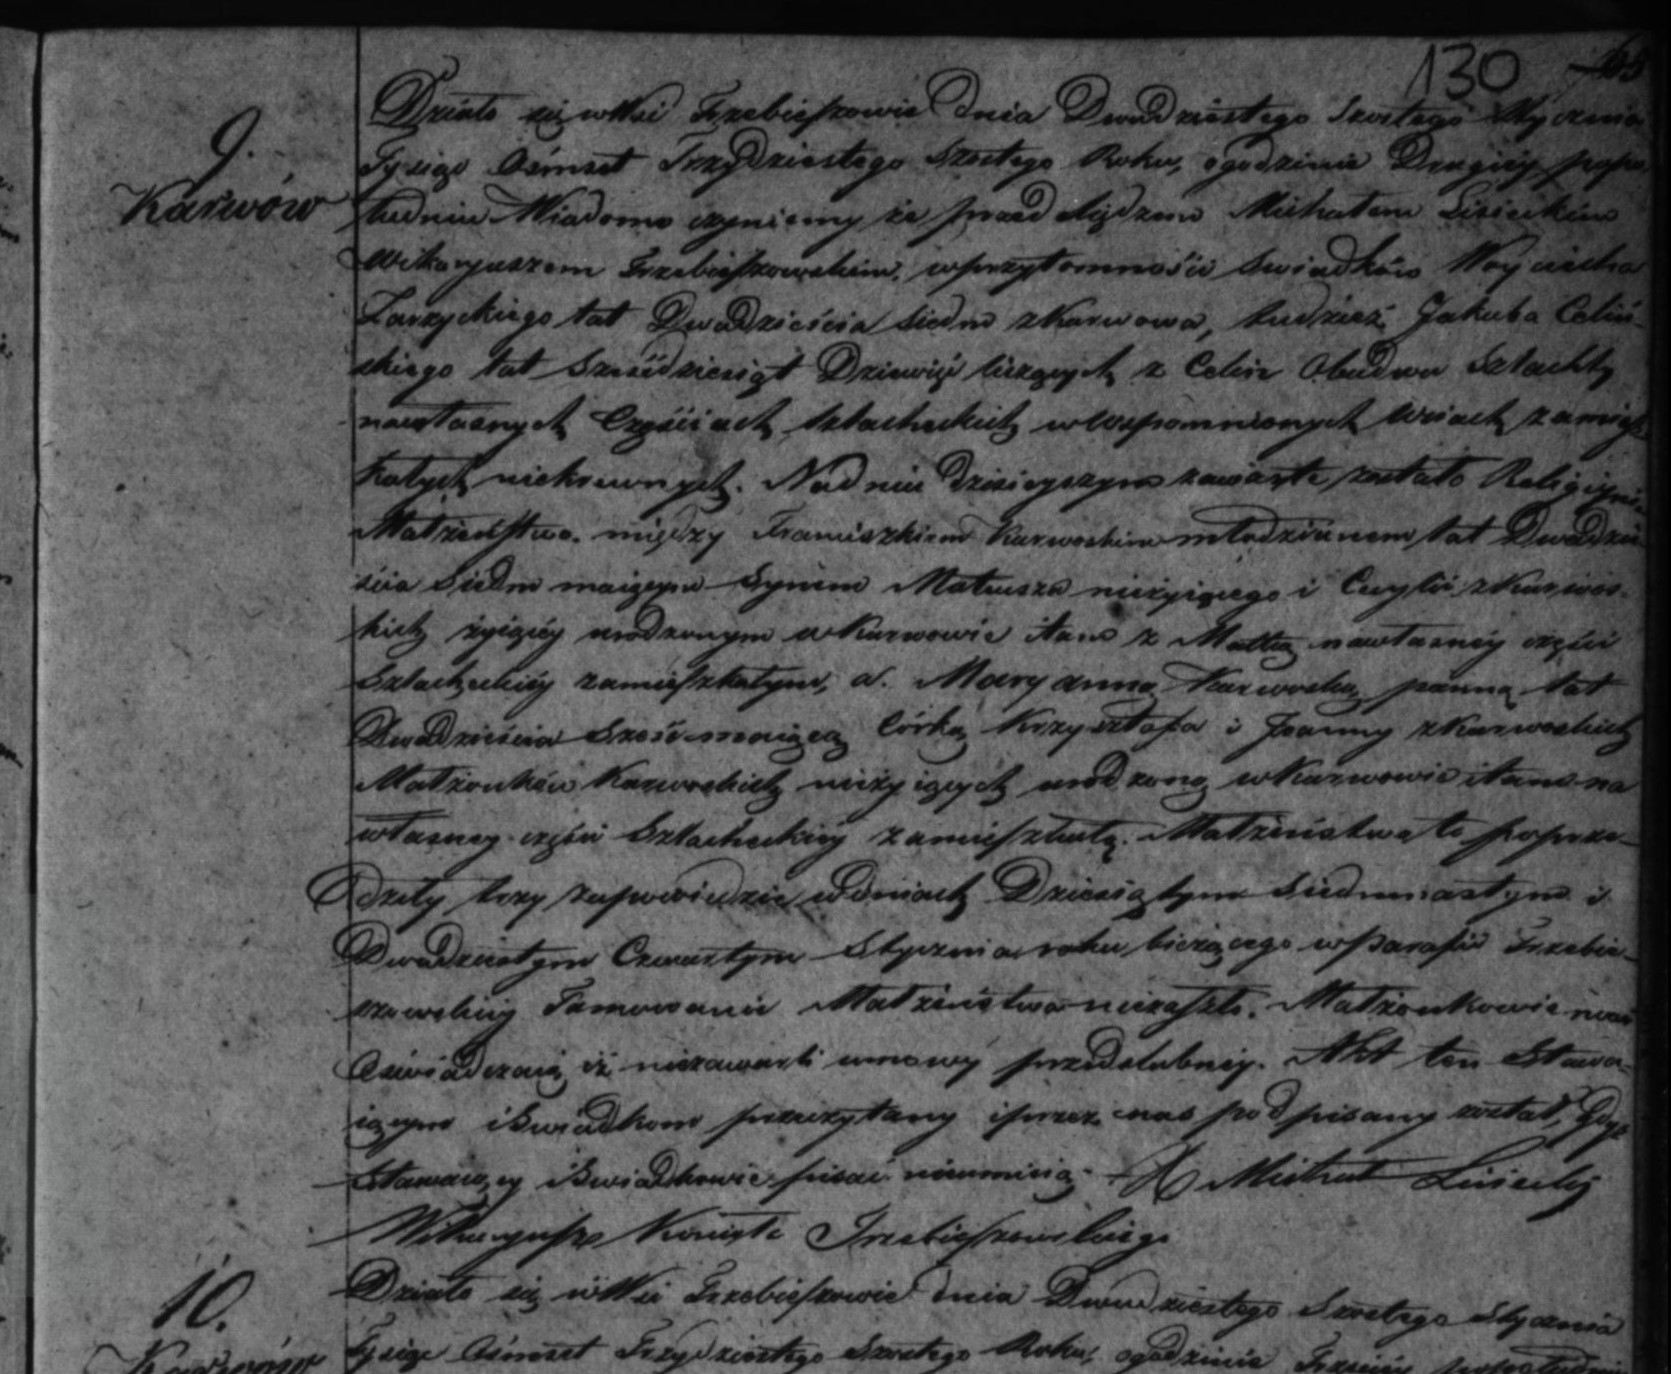 130
9.
Karwów
Działo się w Wsi Trzebieszowie dnia Dwudziestego Szostego Stycznia
Tysiąc Ośmset Trzydziestego Szostego Roku, o godzinie Drugiey popo-
łudniu Wiadomo czyniemy że przed Xiędzem Michałem Lisieckim
Wikaryuszem Trzebieszowskim, w przytomności Swiadków Woyciecha
Zarzyckiego lat Dwadzieścia Siedm z Karwowa, tudzież Jakuba Celiń-
skiego lat Sześćdziesiąt Dziewięć liczących z Celin Obudwu Szlachty
na własnych Częściach szlacheckich w wspomnionych Wsiach zamiesz-
kałych niekrewnych. Na dniu dzisieyszym zawarte zostało Religiyne
Małżeństwo między Franciszkiem Karwoskim młodzianem lat Dwadzie-
ścia Siedm maiącym Synem Mateusza nieżyiącego i Cecylii z Karwos-
kich żyiącéy urodzonym w Karwowie i tam z Matką na własnéy części
Szlacheckiéy zamieszkałym, a Maryanną Karwoską panną lat
Dwadzieścia Sześć maiącą Córką Krzysztofa i Joanny z Karwoskich
Małżonków Karwoskich nieżyiących urodzoną w Karwowie i tam na
własney części Szlacheckiéy zamieszkałą. Małżeństwo to poprze-
dziły trzy zapowiedzie w dniach Dziesiątym Siedmnastym i
Dwudziestym Czwartym Stycznia roku bieżącego w Parafii Trzebie-
szowskiéy Tamowanie Małżeństwa niezaszło. Małżonkowie nowi
Oświadczaią iż niezawarli umowy przedślubnéy. Akt ten Stawa-
iącym i Swiadkom przeczytany i przez nas podpisany został, Gdyż
Stawaiący i Swiadkowie pisać nieumieią. X Michał Lisiecki
Wikaryusz Kościoła Trzebieszowskiego
10.
Karwów
Działo się w Wsi Trzebieszowie dnia Dwudziestego Szostego Stycznia
Tysiąc Ośmset Trzydziestego Szostego Roku, o godzinie Trzeciéy popołudniu